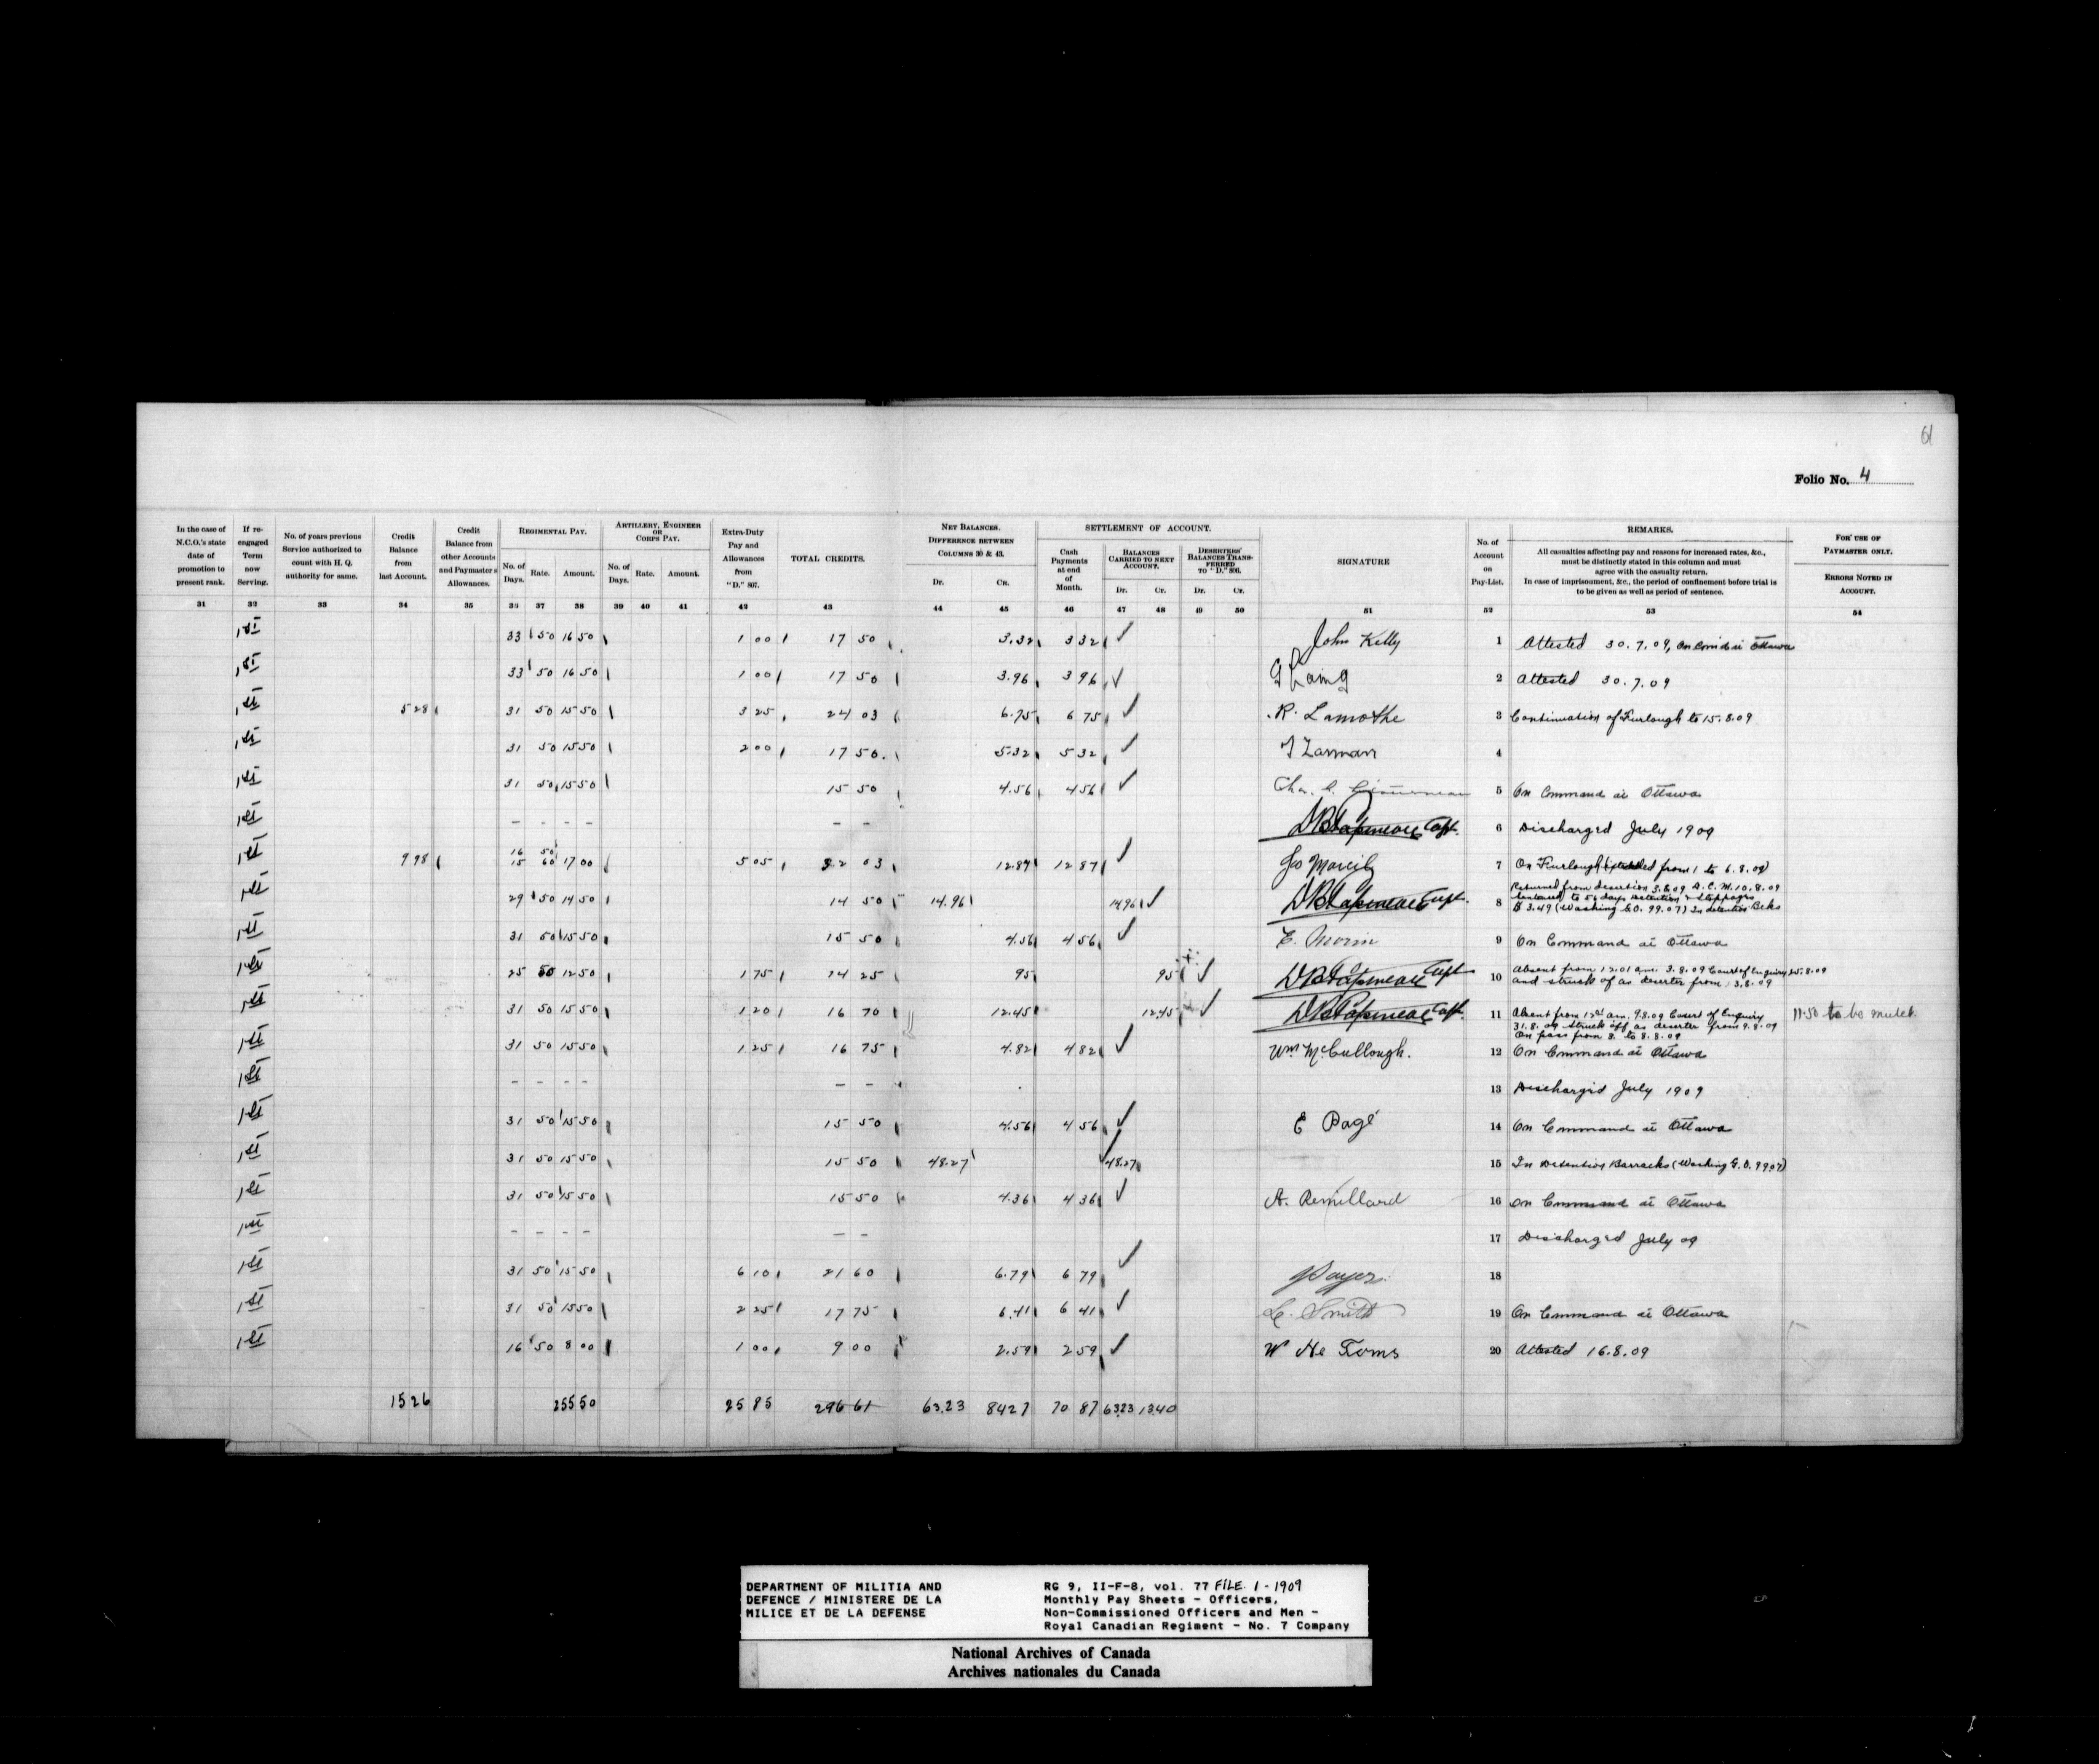 61
Folio No. 4
In the case of N.C.O.'s state date of promotion to present rank.
If re-engaged Term now Serving.
No. of years previous Service authorized to count with H. Q. authority for same.
Credit Balance from last Account.
Credit Balance from other Accounts and Paymaster s Allowances.
REGIMENTAL PAY.
No. of Days. Rate. Amount.
ARTILLERY, ENGINEER OR CORPS PAY.
No. of Days. Rate. Amount.
Extra-Duty Pay and Allowances from "D." 807.
TOTAL CREDITS.
NET BALANCES. DIFFERENCE BETWEEN COLUMNS 30 & 43.
Dr. Cr.
SETTLEMENT OF ACCOUNT.
Cash Payments at end of Month.
BALANCES CARRIED TO NEXT ACCOUNT.
Dr. Cr.
DESERTERS' BALANCES TRANSFERRED TO "D." 806.
Dr. Cr.
SIGNATURE
No. of Account on Pay-List.
REMARKS.
All casualties affecting pay and reasons for increased rates, &c., must be distinctly stated in this column and must agree with the casualty return.
In case of imprisonment, &c., the period of confinement before trial is to be given as well as period of sentence.
FOR USE OF PAYMASTER ONLY.
ERRORS NOTED IN ACCOUNT.
31 32 33 34 35 36 37 38 39 40 41 42 43 44 45 46 47 48 49 50 51 52 53 54
1st 33 50 16 50 1 00 17 50 3.32 3 32 John Kelly 1 Attested 30.7.09, On Comd at Ottawa
1st 33 50 16 50 1 00 17 50 3.96 3 96 G Laing 2 Attested 30.7.09
1st 5 28 31 50 15 50 3 25 24 03 6.75 6 75 R. Lamothe 3 Continuation of Furlough to 15.8.09
1st 31 50 15 50 2 00 17 50 5.32 5 32 T Zarman 4
1st 31 50 15 50 15 50 4.56 4 56 Chas. 5 On Command at Ottawa
1st - - - - - - D B Papineau Capt. 6 Discharged July 1909
1st 9 98 16 50 15 60 17 00 5 05 32 03 12.87 12 87 Jos Marcil 7 On Furlough (extended from 1 to 6.8.09)
1st 29 50 14 50 14 50 14.96 14.96 D B Papineau Capt. 8 Returned from desertion 3.8.09 D.C.M. 10.8.09
Sentenced to 56 days detention & Stoppages
$ 3.49 (Washing G.O. 99.07) In detention Bcks
1st 31 50 15 50 15 50 4.56 4 56 E. Morin 9 On Command at Ottawa
1st 25 50 12 50 1 75 14 25 95 95 D B Papineau Capt 10 Absent from 12.01 a.m. 3.8.09 Court of Enquiry 25.8.09
and struck of as deserter from 3.8.09
1st 31 50 15 50 1 20 16 70 12.45 12.45 D B Papineau Capt. 11 Absent from 12st am. 9.8.09 Court of Enquiry
31.8.09 struck off as deserter from 9.8.09
On pass from 8. to 8.8.09
11.50 to be mulct
1st 31 50 15 50 1 25 16 75 4.82 4 82 Wm McCullough. 12 On Command at Ottawa
1st - - - - - - 13 Discharged July 1909
1st 31 50 15 50 15 50 4.56 4 56 E Pagé 14 On Command at Ottawa
1st 31 50 15 50 15 50 48.27 48.27 15 In Detention Barracks (Washing G.O. 9907)
1st 31 50 15 50 15 50 4.36 4 36 A. Remillard 16 On Command at Ottawa
1st - - - - - - 17 Discharged July 09
1st 31 50 15 50 6 10 21 60 6.79 6 79 J Payer 18
1st 31 50 15 50 2 25 17 75 6.41 6 41 L. Smith 19 On Command at Ottawa
1st 16 50 8 00 1 00 9 00 2.59 2 59 W He Toms 20 Attested 16.8.09
15 26 255 50 25 85 296 61 63.23 84 27 70 87 63.23 13.40
DEPARTMENT OF MILITIA AND
DEFENCE / MINISTERE DE LA
MILICE ET DE LA DEFENSE
RG 9, II-F-8, vol. 77 FILE 1 - 1909
Monthly Pay Sheets - Officers,
Non-Commissioned Officers and Men -
Royal Canadian Regiment - No. 7 Company
National Archives of Canada
Archives nationales du Canada